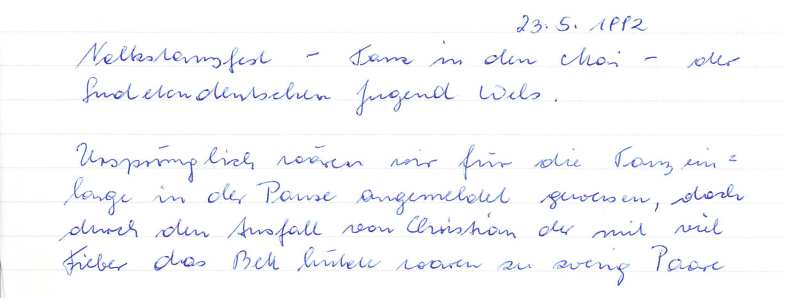 23.5.1992
Volkstanzfest - Tanz in den Mai - der
Sudetendeutschen Jugend Wels.
Ursprünglich wären wir für die Tanzein=
lage in der Pause angemeldet gewesen, doch
durch den Ausfall von Christian der mit viel
Fieber das Bett hütete waren zu wenig Paare